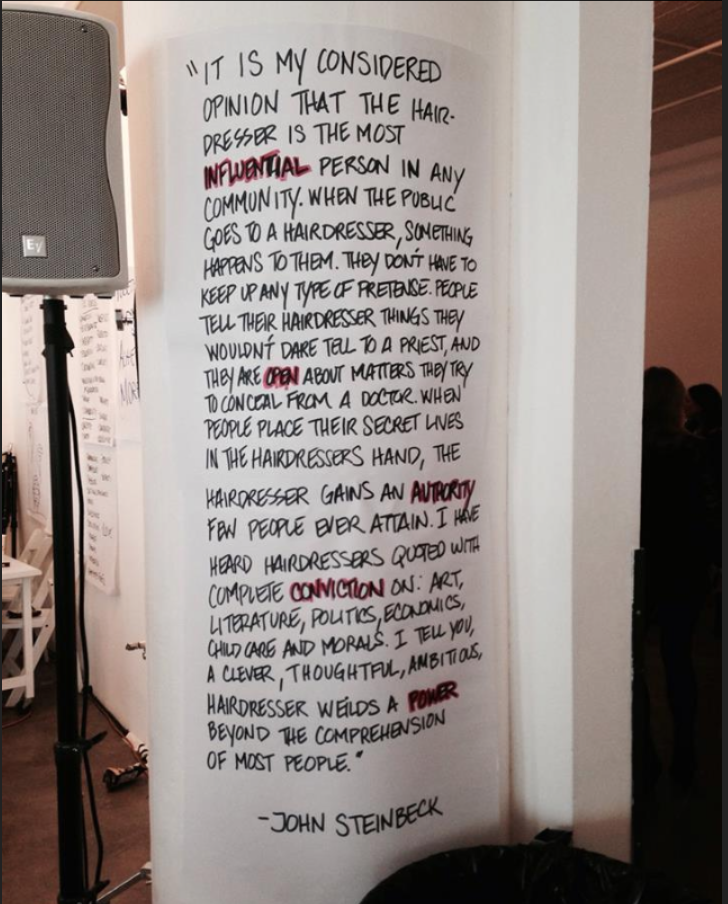 "IT IS MY CONSIDERED
OPINION THAT THE HAIR-
DRESSER IS THE MOST
INFLUENTIAL PERSON IN ANY
COMMUNITY. WHEN THE PUBLIC
GOES TO A HAIRDRESSER, SOMETHING
HAPPENS TO THEM. THEY DON'T HAVE TO
KEEP UP ANY TYPE OF PRETENSE. PEOPLE
TELL THEIR HAIRDRESSER THINGS THEY
WOULDN'T DARE TELL TO A PRIEST, AND
THEY ARE OPEN ABOUT MATTERS THEY TRY
TO CONCEAL FROM A DOCTOR. WHEN
PEOPLE PLACE THEIR SECRET LIVES
IN THE HAIRDRESSERS HAND, THE
HAIRDRESSER GAINS AN AUTHORITY
FEW PEOPLE EVER ATTAIN. I HAVE
HEARD HAIRDRESSERS QUOTED WITH
COMPLETE CONVICTION ON: ART,
LITERATURE, POLITICS, ECONOMICS,
CHILD CARE AND MORALS. I TELL YOU,
A CLEVER, THOUGHTFUL, AMBITIOUS,
HAIRDRESSER WEILDS A POWER
BEYOND THE COMPREHENSION
OF MOST PEOPLE."
-JOHN STEINBECK
EV